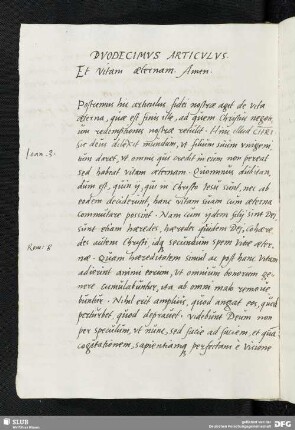 DVODECIMVS ARTICVLVS.
Et vitam æternam. Amen.
Postremus hic articulus fidei nostræ agit de vita
æterna, quæ est finis ille, ad quem Christus negoti
um redemptionis nostræ retulit. Hinc illud CHRI
Ioan. 3.
Sic deus dilexit mundum, ut filium suum unigeni
tum daret, ut omnis qui credit in eum non pereat
sed habeat vitam æternam. Quominus dubitan
dum est, quin ij, qui in Christo Iesu sunt, nec ab
eodem desciverint, hanc vitam suam cum æterna
commutare possint. Nam cum ijdem filij sint Dei,
sunt etiam hæredes, hæredes quidem Dei, cohære
Rom: 8
des autem Christi, idque secundum spem vitæ æter
næ. Quam hæreditatem simul ac post hanc vitam
adierint animi eorum, ut omnium bonorum ge
nere cumulabuntur, ita ab omni malo remove
buntur. Nihil erit amplius, quod angat eos, quod
perturbet, quod depravet. Videbunt Deum non
per speculum, ut nunc, sed facie ad faciem, et quam
cogitationem, sapientiamque perfectam e visione
SLUB
DFG